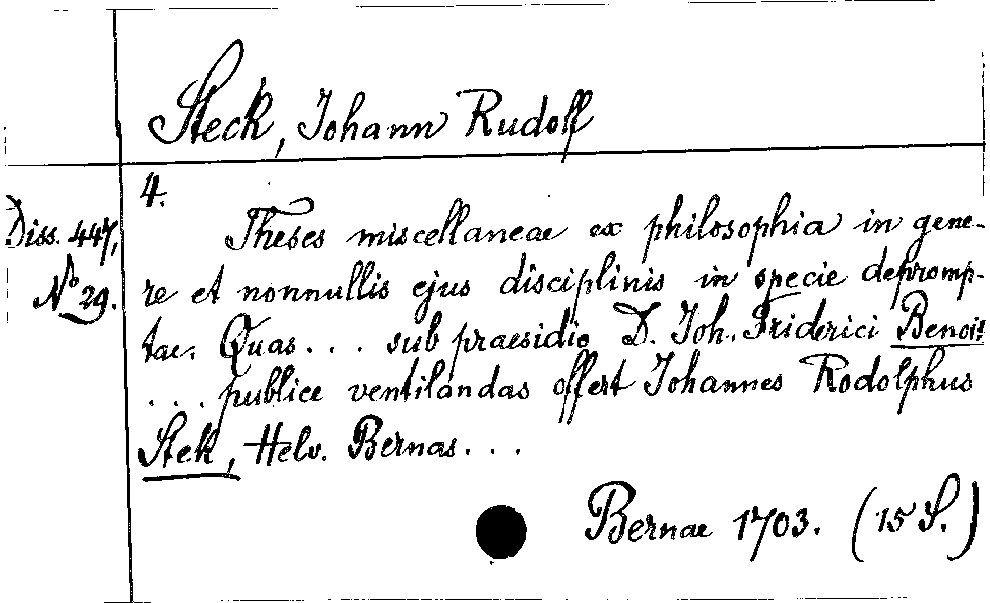 Steck, Johann Rudolf
4.
Diss. 447,
No 29.
Theses miscellaneae ex philosophia in gene-
re et nonnullis ejus disciplinis in specie depromp-
tae. Quas... sub praesidio D. Joh. Friderici Benoit
... publice ventilandas offert Johannes Rodolphus
Stek, Helv. Bernas...
Bernae 1703. (15 S.)